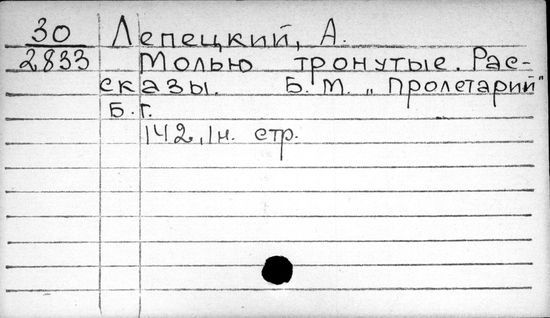 30 Лепецкий, А.
2833 Молью тронутые. Рас-
сказы. Б.М. „Пролетарий"
Б.г.
142, 1н. стр.